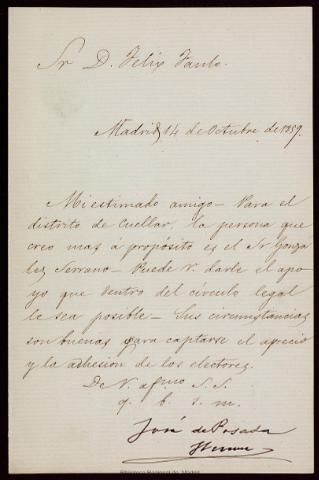 Sr D. Felix Fanlo.
Madrid 14 de Octubre de 1859.
Mi estimado amigo – Para el
distrito de Cuellar, la persona que
creo mas á proposito es el Sr Gonza
lez Serrano – Puede V. darle el apo
yo que dentro del círculo legal
le sea posible – Sus circunstancias
son buenas para captarse el aprecio
y la adhesion de los electores.
De V. afmo S. S.
q. b. s. m.
José de Posada
Herrera
Biblioteca Regional de Madrid